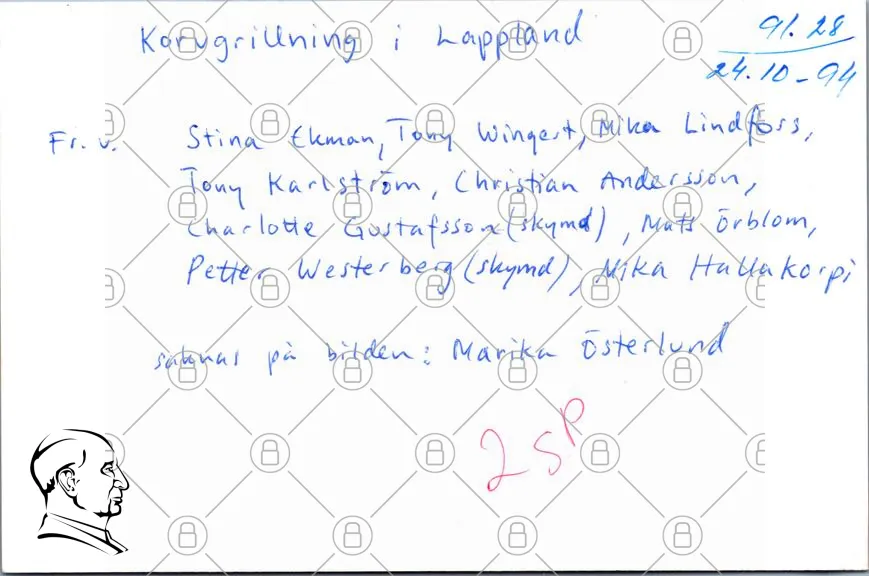 Korvgrillning i Lappland
91.28
24.10-94
Fr. v. Stina Ekman, Tony Wingest, Mika Lindfors,
Tony Karlström, Christian Andersson,
Charlotte Gustafsson (skymd), Mats Örblom,
Petter Westerberg (skymd), Mika Hallakorpi
saknas på bilden: Marika Österlund
2 sp